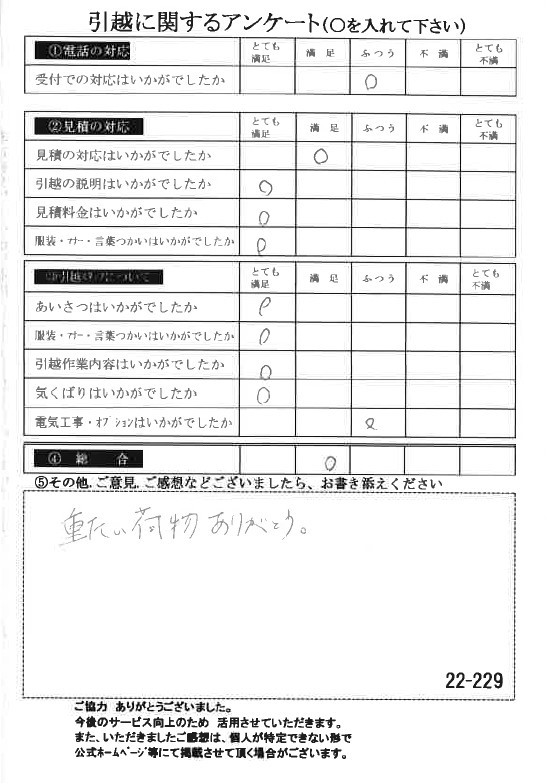 引越に関するアンケート(○を入れて下さい)
①電話の対応 とても満足 満足 ふつう 不満 とても不満
受付での対応はいかがでしたか ○
②見積の対応 とても満足 満足 ふつう 不満 とても不満
見積の対応はいかがでしたか ○
引越の説明はいかがでしたか ○
見積料金はいかがでしたか ○
服装・マナー・言葉つかいはいかがでしたか ○
とても満足 満足 ふつう 不満 とても不満
あいさつはいかがでしたか ○
服装・マナー・言葉つかいはいかがでしたか ○
引越作業内容はいかがでしたか ○
気くばりはいかがでしたか ○
電気工事・オプションはいかがでしたか ○
④ 総 合 ○
⑤その他.ご意見.ご感想などございましたら、お書き添えください
重たい荷物ありがとう。
22-229
ご協力 ありがとうございました。
今後のサービス向上のため 活用させていただきます。
また、いただきましたご感想は、個人が特定できない形で
公式ホームページ等にて掲載させて頂く場合がございます。